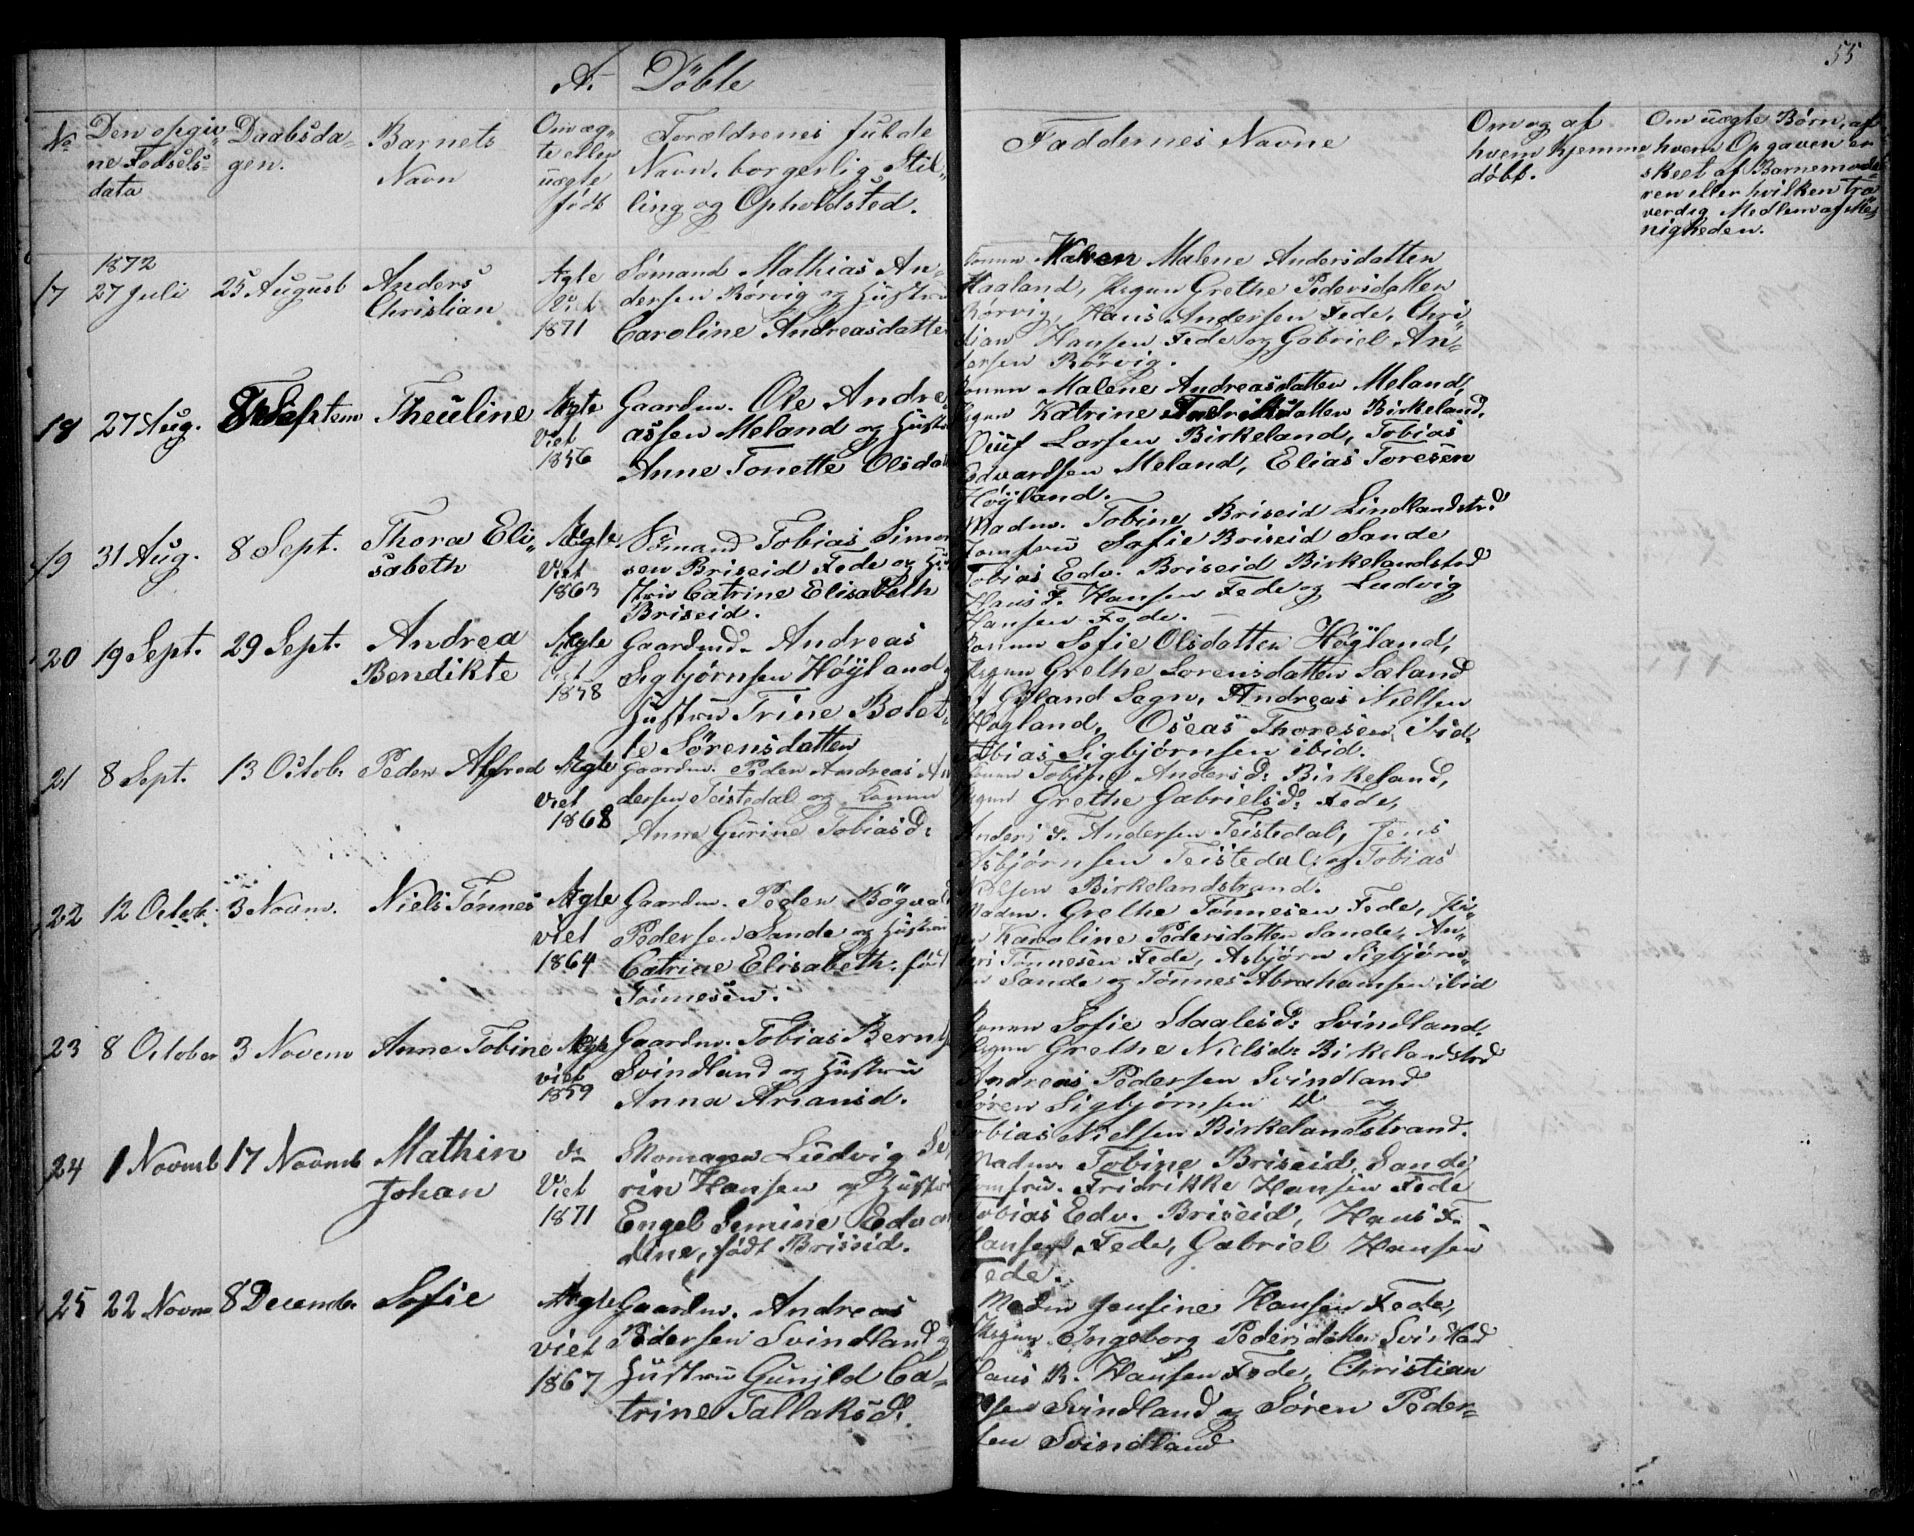 55
A. Döbte
No
Den opgiv=
ne Fødsels=
data
Daabsda=
gen.
Barnets
Navn
Om æg=
te eller
uægte
født
Forældrenes fulde
Navn, borgerlig Stil=
ling og Opholdsted.
Faddernes Navne
Om og af
hvem hjemme
døbt.
Om uægte Børn, af
hvem Opgaven er
skeet af Barnemode
ren eller hvilken tro
verdig Medlem af Me=
nigheden.
1872
17 27 Juli 25 August Anders
Christian
Ægte
Viet
1871
Sømand Mathias An=
dersen Rørvig og Hustru
Caroline Andreasdatte
Konen Malene Andersdatten
Haaland, Pigen Grethe Pedersdatten
Rørvig, Hans Andersen Fede, Chri=
stian Hansen Fede og Gabriel An=
dersen Rørvig.
18 27 Aug. 8 Septem Theuline Ægte
Viet
1856
Gaardm. Ole Andre
assen Meland og Hustr
Anne Tonette Olsdat
Konen Malene Andreasdatten Meland,
Pigen Katrine Fredriksdatten Birkeland,
Ouuf Larsen Birkeland, Tobias
Edvardsen Meland, Elias Toresen
Høÿland.
19 31 Aug. 8 Sept. Thora Eli=
sabeth
Ægte
Viet
1863
Sømand Tobias Simon
sen Briseid Fede og Hu
stru Catrine Elisabeth
Briseid.
Madm. Tobine Briseid Lindlandstrd
Jomfru Sofie Briseid Sande
Tobias Edv. Briseid Birkelandstrd
Hans F. Hansen Fede og Ludvig
Hansen Fede.
20 19 Sept. 29 Sept. Andrea
Bendikte
Ægte
Viet
1858
Gaardmd. Andreas
Sigbjørnsen Høÿland
Hustru Trine Bolet=
te Sørensdatten
Konen Sofie Olsdatten Høgland,
Pigen Grethe Lorensdatten Sæland
af Gÿland Sogn, Andreas Nielsen
Høgland, Oseas Thoresen ibid.
Tobias Sigbjørnsen ibid.
21 8 Sept. 13 Octob. Peder Alfred Ægte
Viet
1868
Gaardm. Peder Andreas An
dersen Teistedal og Konen
Anne Gurine Tobiasd:
Konen Tobine Andersd: Birkeland,
Pigen Grethe Gabrielsd: Fede,
Anders F. Andersen Teistedal, Jens
Asbjørnsen Teistedal og Tobias
Nielsen Birkelandstrand.
22 12 Octob. 3 Novm. Niels Tønnes Ægte
Viet
1864
Gaardm. Peder Bøgvald
Pedersen Sande og Hustru
Catrine Elisabeth født
Tönnesen.
Madm. Grethe Tønnesen Fede, Pi=
gen Karoline Pedersdatten Sande, An=
ders Tønnesen Fede, Asbjørn Sigbjørn=
sen Sande og Tønnes Abrahamsen ibid
23 8 October 3 Novem Anne Tobine Ægte
viet
1859
Gaardm. Tobias Bernt
Svindland og Hustru
Anna Ariansd.
Konen Sofie Staalesd: Svindland.
Pigen Grethe Nielsd: Birkelandstrd
Andreas Pedersen Svindland
Søren Sigbjørnsen Do og
Tobias Nielsen Birkelandstrand.
24 1 Novmb 17 Novmb Mathin
Johan
do
Viet
1871
Skomager Ludvig Se
rin Hansen og Hustru
Engel Semine Edvar
dine, født Briseid.
Madm. Tobine Briseid, Sande,
Jomfru. Fridrikke Hansen Fede
Tobias Edv. Briseid, Hans F.
Hansen, Fede, Gabriel Hansen
Fede.
25 22 Novm 8 Decembr Sofie Ægte
viet
1867
Gaardm. Andreas
Pedersen Svindland og
Hustru Gunild Ca=
trine Tallaksd.
Madm Jensine Hansen Fede,
Pigen Ingeborg Pedersdatten Svindlad
Hans R. Hansen Fede, Christian
Olsen Svindland og Søren Peder=
sen Svindland